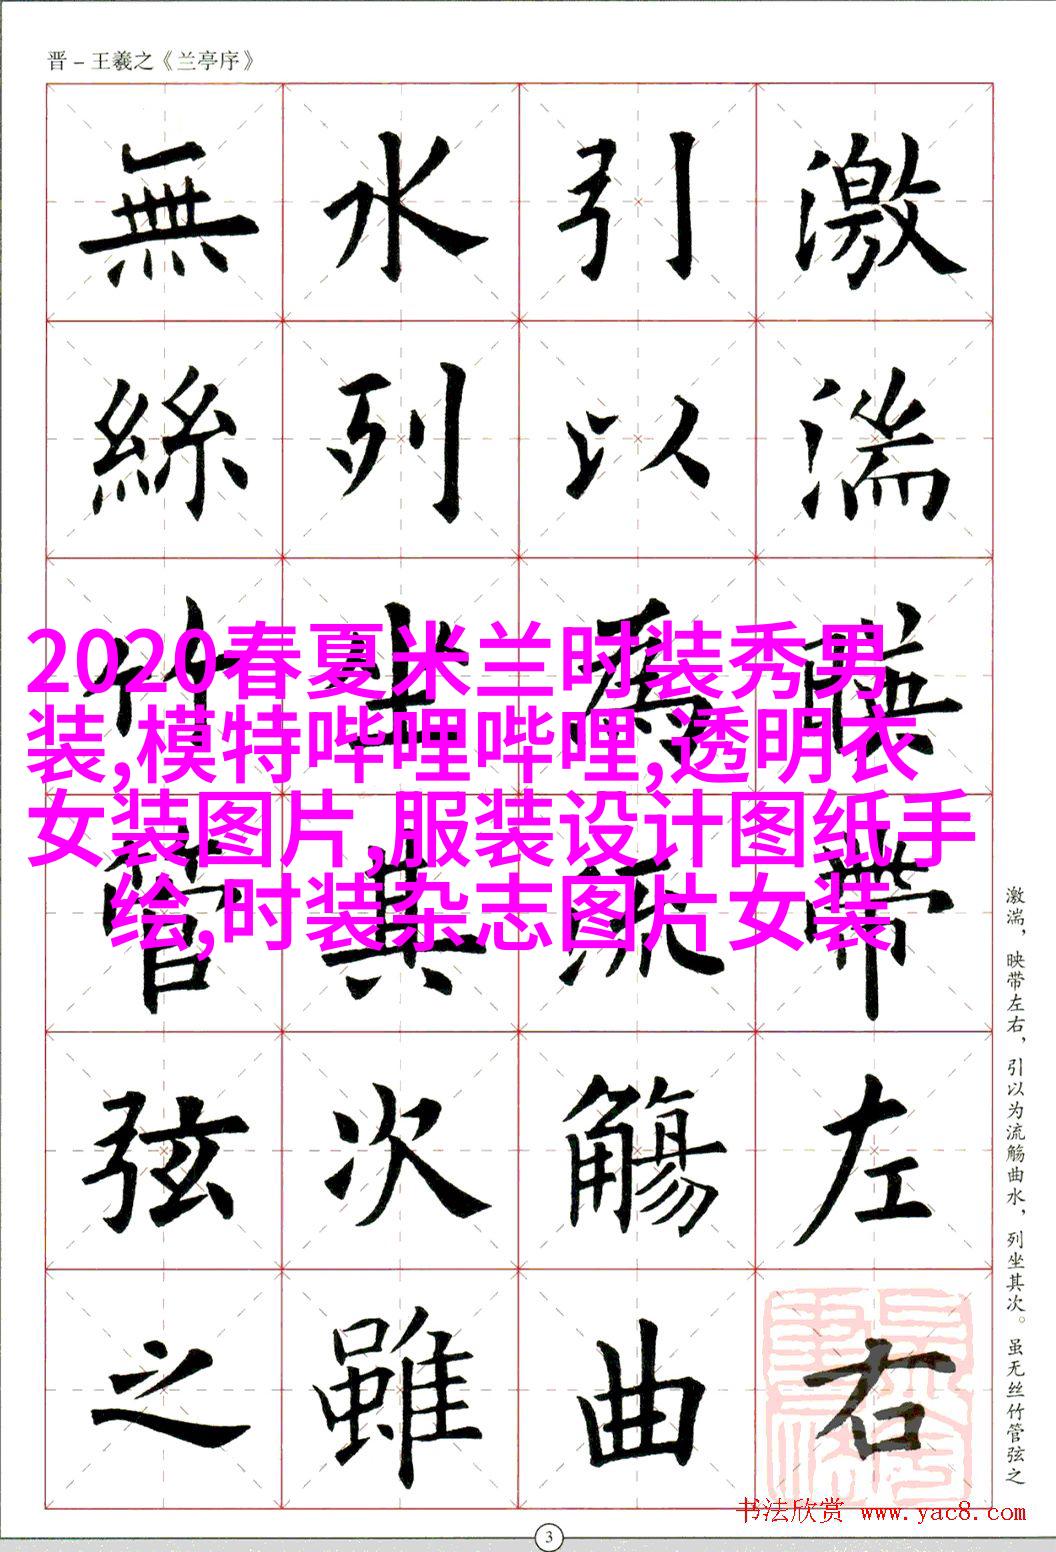 晋－王羲之《兰亭序》
激湍暎帶左右
引以為流觴曲
水列坐其次雖
無絲竹管弦之
2020春夏米兰时装秀男
装,模特哔哩哔哩,透明衣
女装图片,服装设计图纸手
绘,时装杂志图片女装
激湍，映带左右，引以为流觞曲水，列坐其次。虽无丝竹管弦之
书法欣赏 www.yac8.com
3